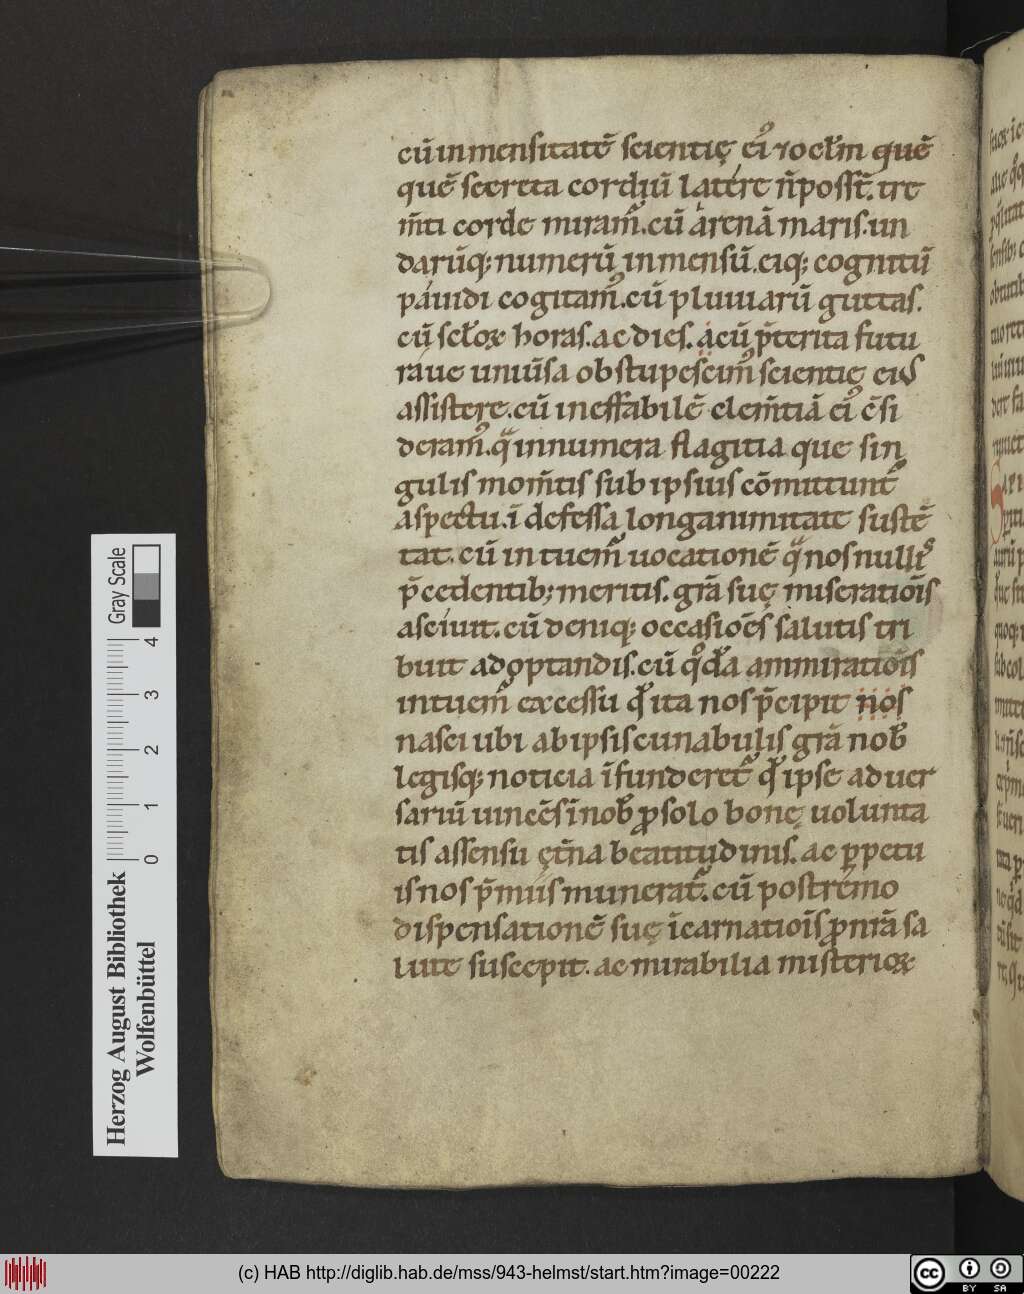 cū inmensitatē scientię ei᷒ ⁊ oclm̄ quē
quē secreta cordiū latere n̄ posst̄. tre
m̄ti corde miram᷒. cū arenā maris. un
darūq; numerū inmensū. eiq; cognitū
pauidi cogitam᷒. cū pluuiarū guttas.
cū scl̄oꝝ horas. ac dies. acū p̄terita futu
raue uniūsa obstupescim᷒ scientię eius
assistere. cū ineffabilē clem̄tiā ei᷒ c̄si
deram᷒. qͣ innumera flagitia que sin
gulis mom̄tis sub ipsius cōmittunt᷑
aspectu. ī defessa longanimitate sustē
tat. cū intuem᷑ uocationē qͣ nos nullis
p̄cedentib; meritis. grā suę miseratiōis
asciuit. cū deniq; occasiōēs salutis tri
buit adoptandis. cū qͦda ammiratiōis
intuem᷑ excessu qd̄ ita nos p̄cipit nos
nasci ubi ab ipsis cunabulis grā nob̄
legisq; noticia īfunderet᷑ qd̄ ipse aduer
sariū uincēs ī nob̄ ꝓ solo bonę uolunta
tis assensu ęt̄na beatitudinis. ac ꝑpetu
is nos p̄miis munerat᷑. cū postremo
dispensationē suę īcarnatiōis ꝓ nrā sa
lute suscepit. ac mirabilia misterioꝝ
Herzog August Bibliothek
Wolfenbüttel
0 1 2 3 4
Gray Scale
(c) HAB http://diglib.hab.de/mss/943-helmst/start.htm?image=00222
cc BY SA